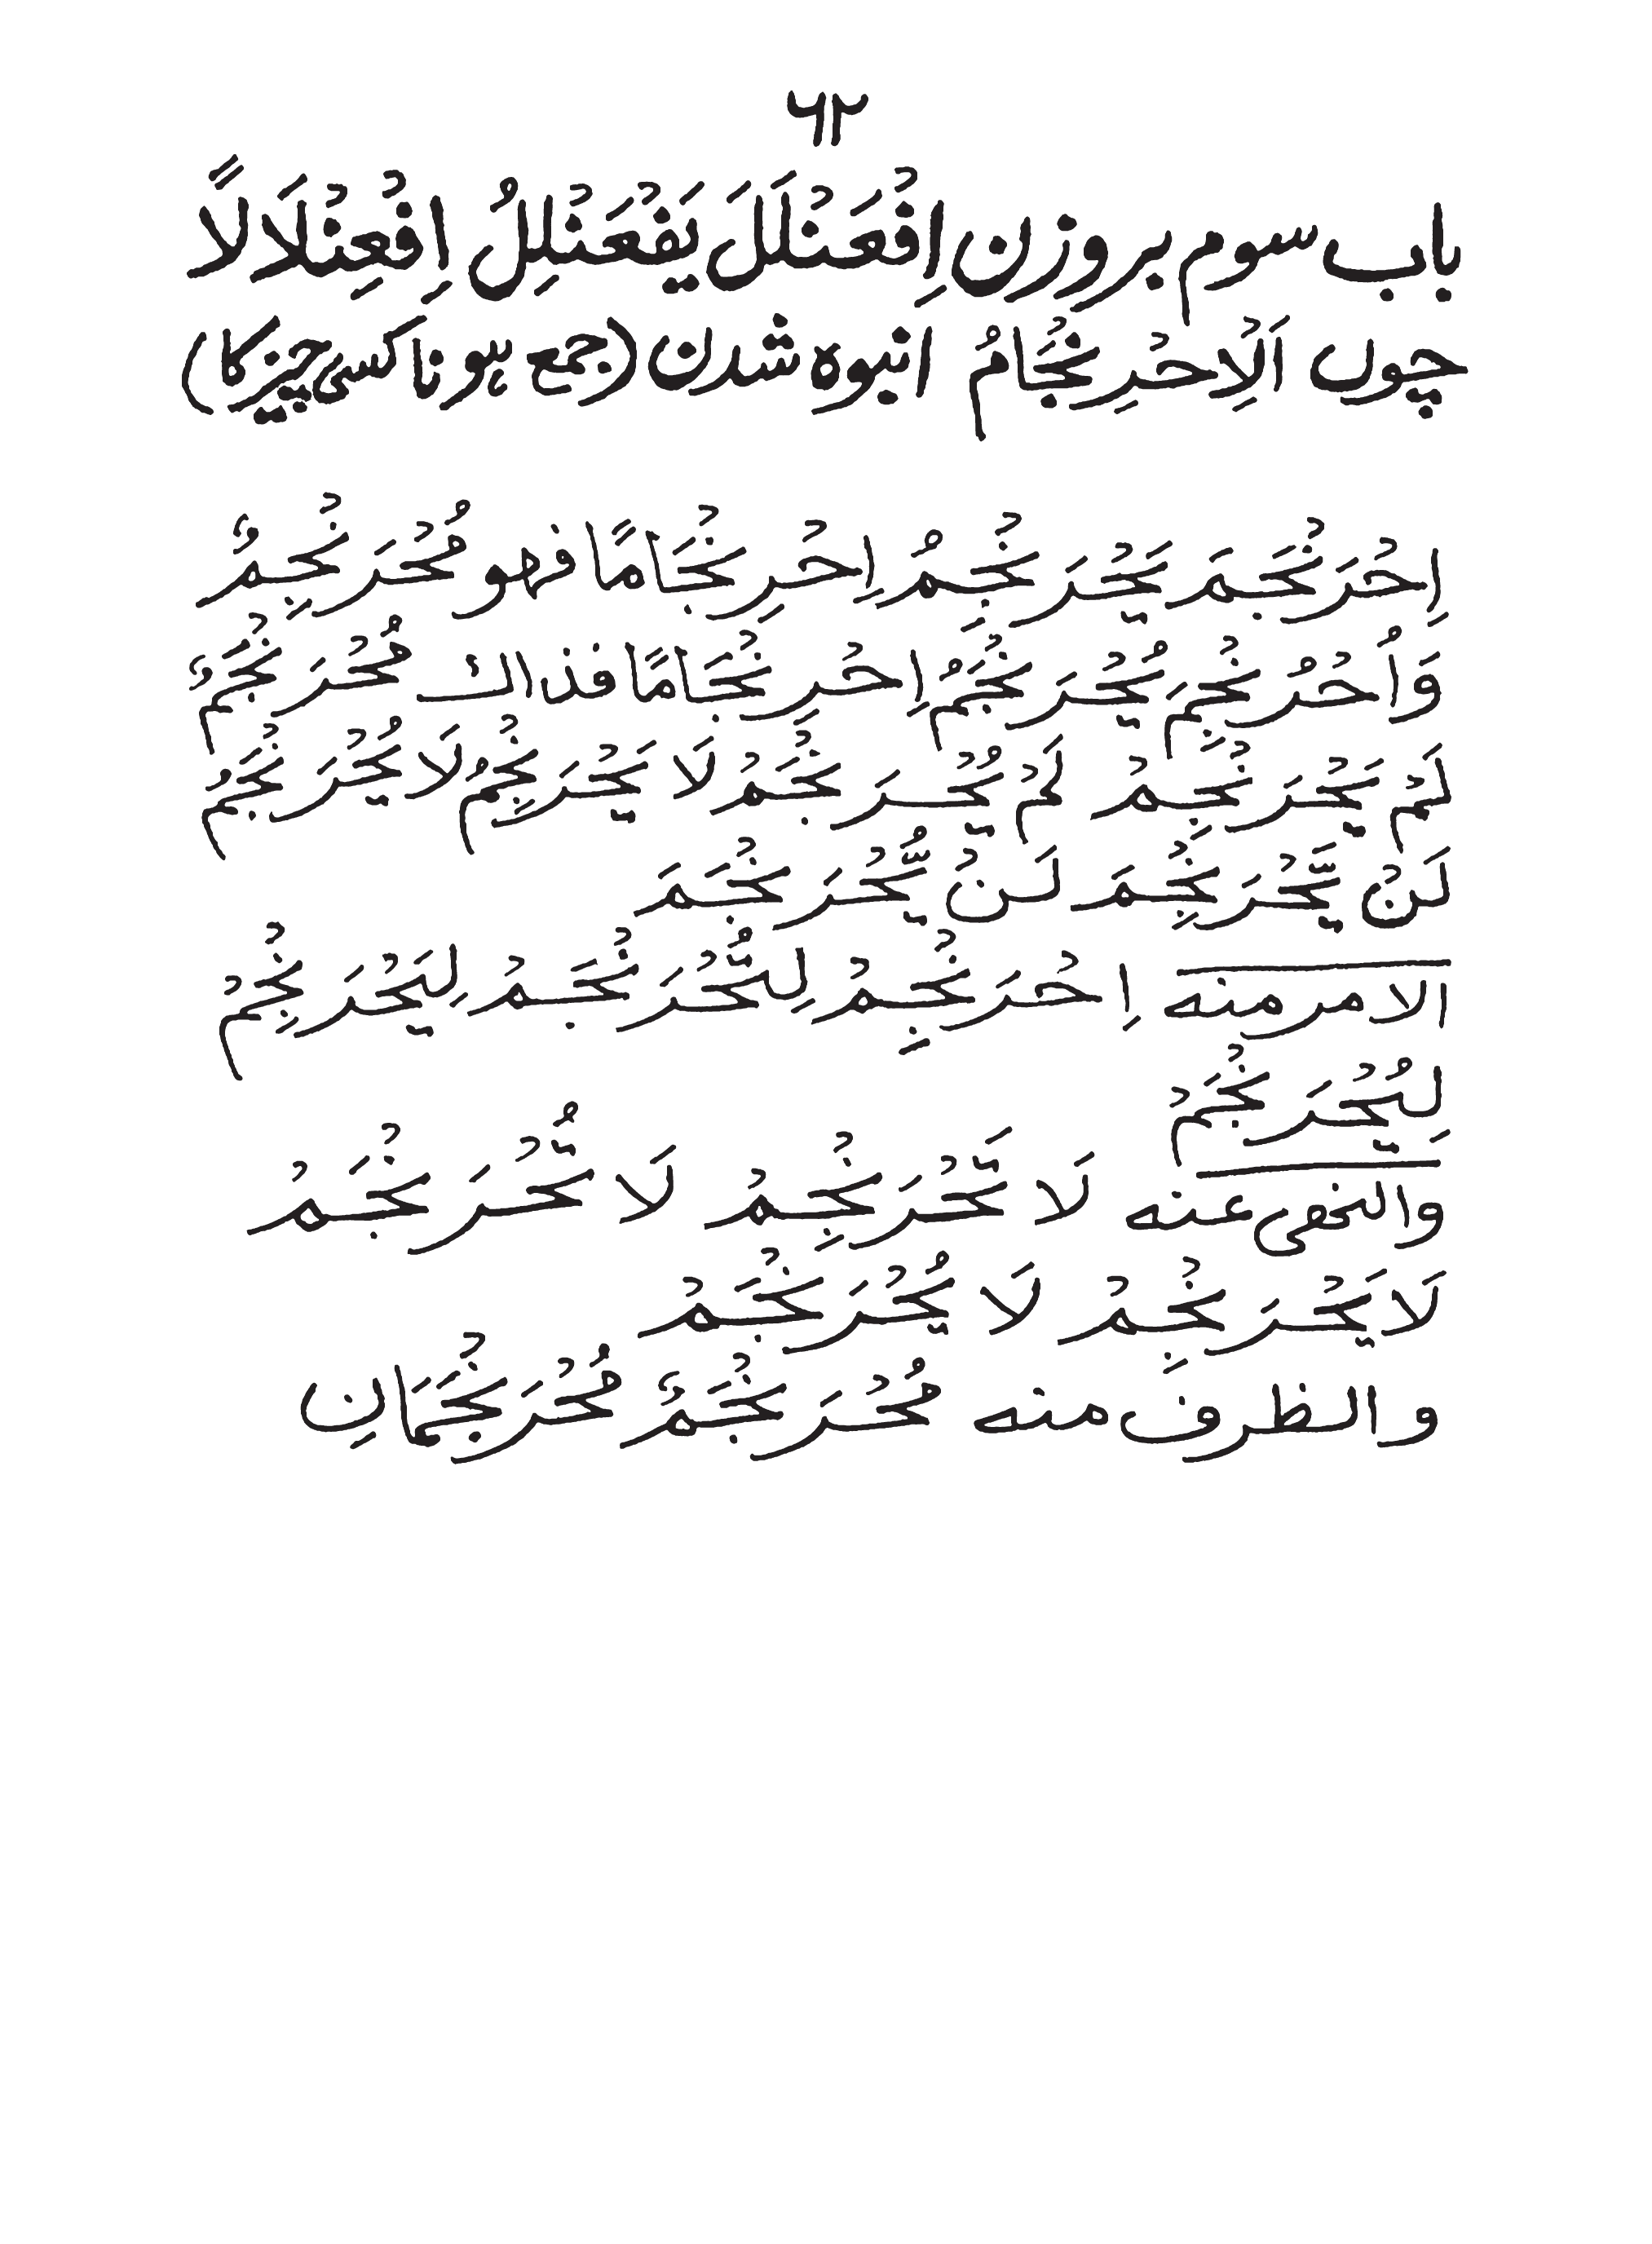 ٦٢
باب سوم بروزن اِفْعَنْلَلَ يَفْعَنْلِلُ اِفْعِنْلَالًا
چوں اَلْاِحْرِنْجَامُ انبوہ شدن (جمع ہونا کسی چیز کا)
اِحْرَنْجَمَ يَحْرَنْجِمُ اِحْرِنْجَامًا فهو مُحْرَنْجِمٌ
وَاُحْرُنْجِمَ يُحْرَنْجَمُ اِحْرِنْجَامًا فذاك مُحْرَنْجَمٌ
لَمْ يَحْرَنْجِمْ لَمْ يُحْرَنْجَمْ لَا يَحْرَنْجِمُ لَا يُحْرَنْجَمُ
لَنْ يَّحْرَنْجِمَ لَنْ يُّحْرَنْجَمَ
الامر منه اِحْرَنْجِمْ لِتُحْرَنْجَمْ لِيَحْرَنْجِمْ
لِيُحْرَنْجَمْ
والنهى عنه لَا تَحْرَنْجِمْ لَا تُحْرَنْجَمْ
لَا يَحْرَنْجِمْ لَا يُحْرَنْجَمْ
والظرف منه مُحْرَنْجَمٌ مُحْرَنْجَمَانِ